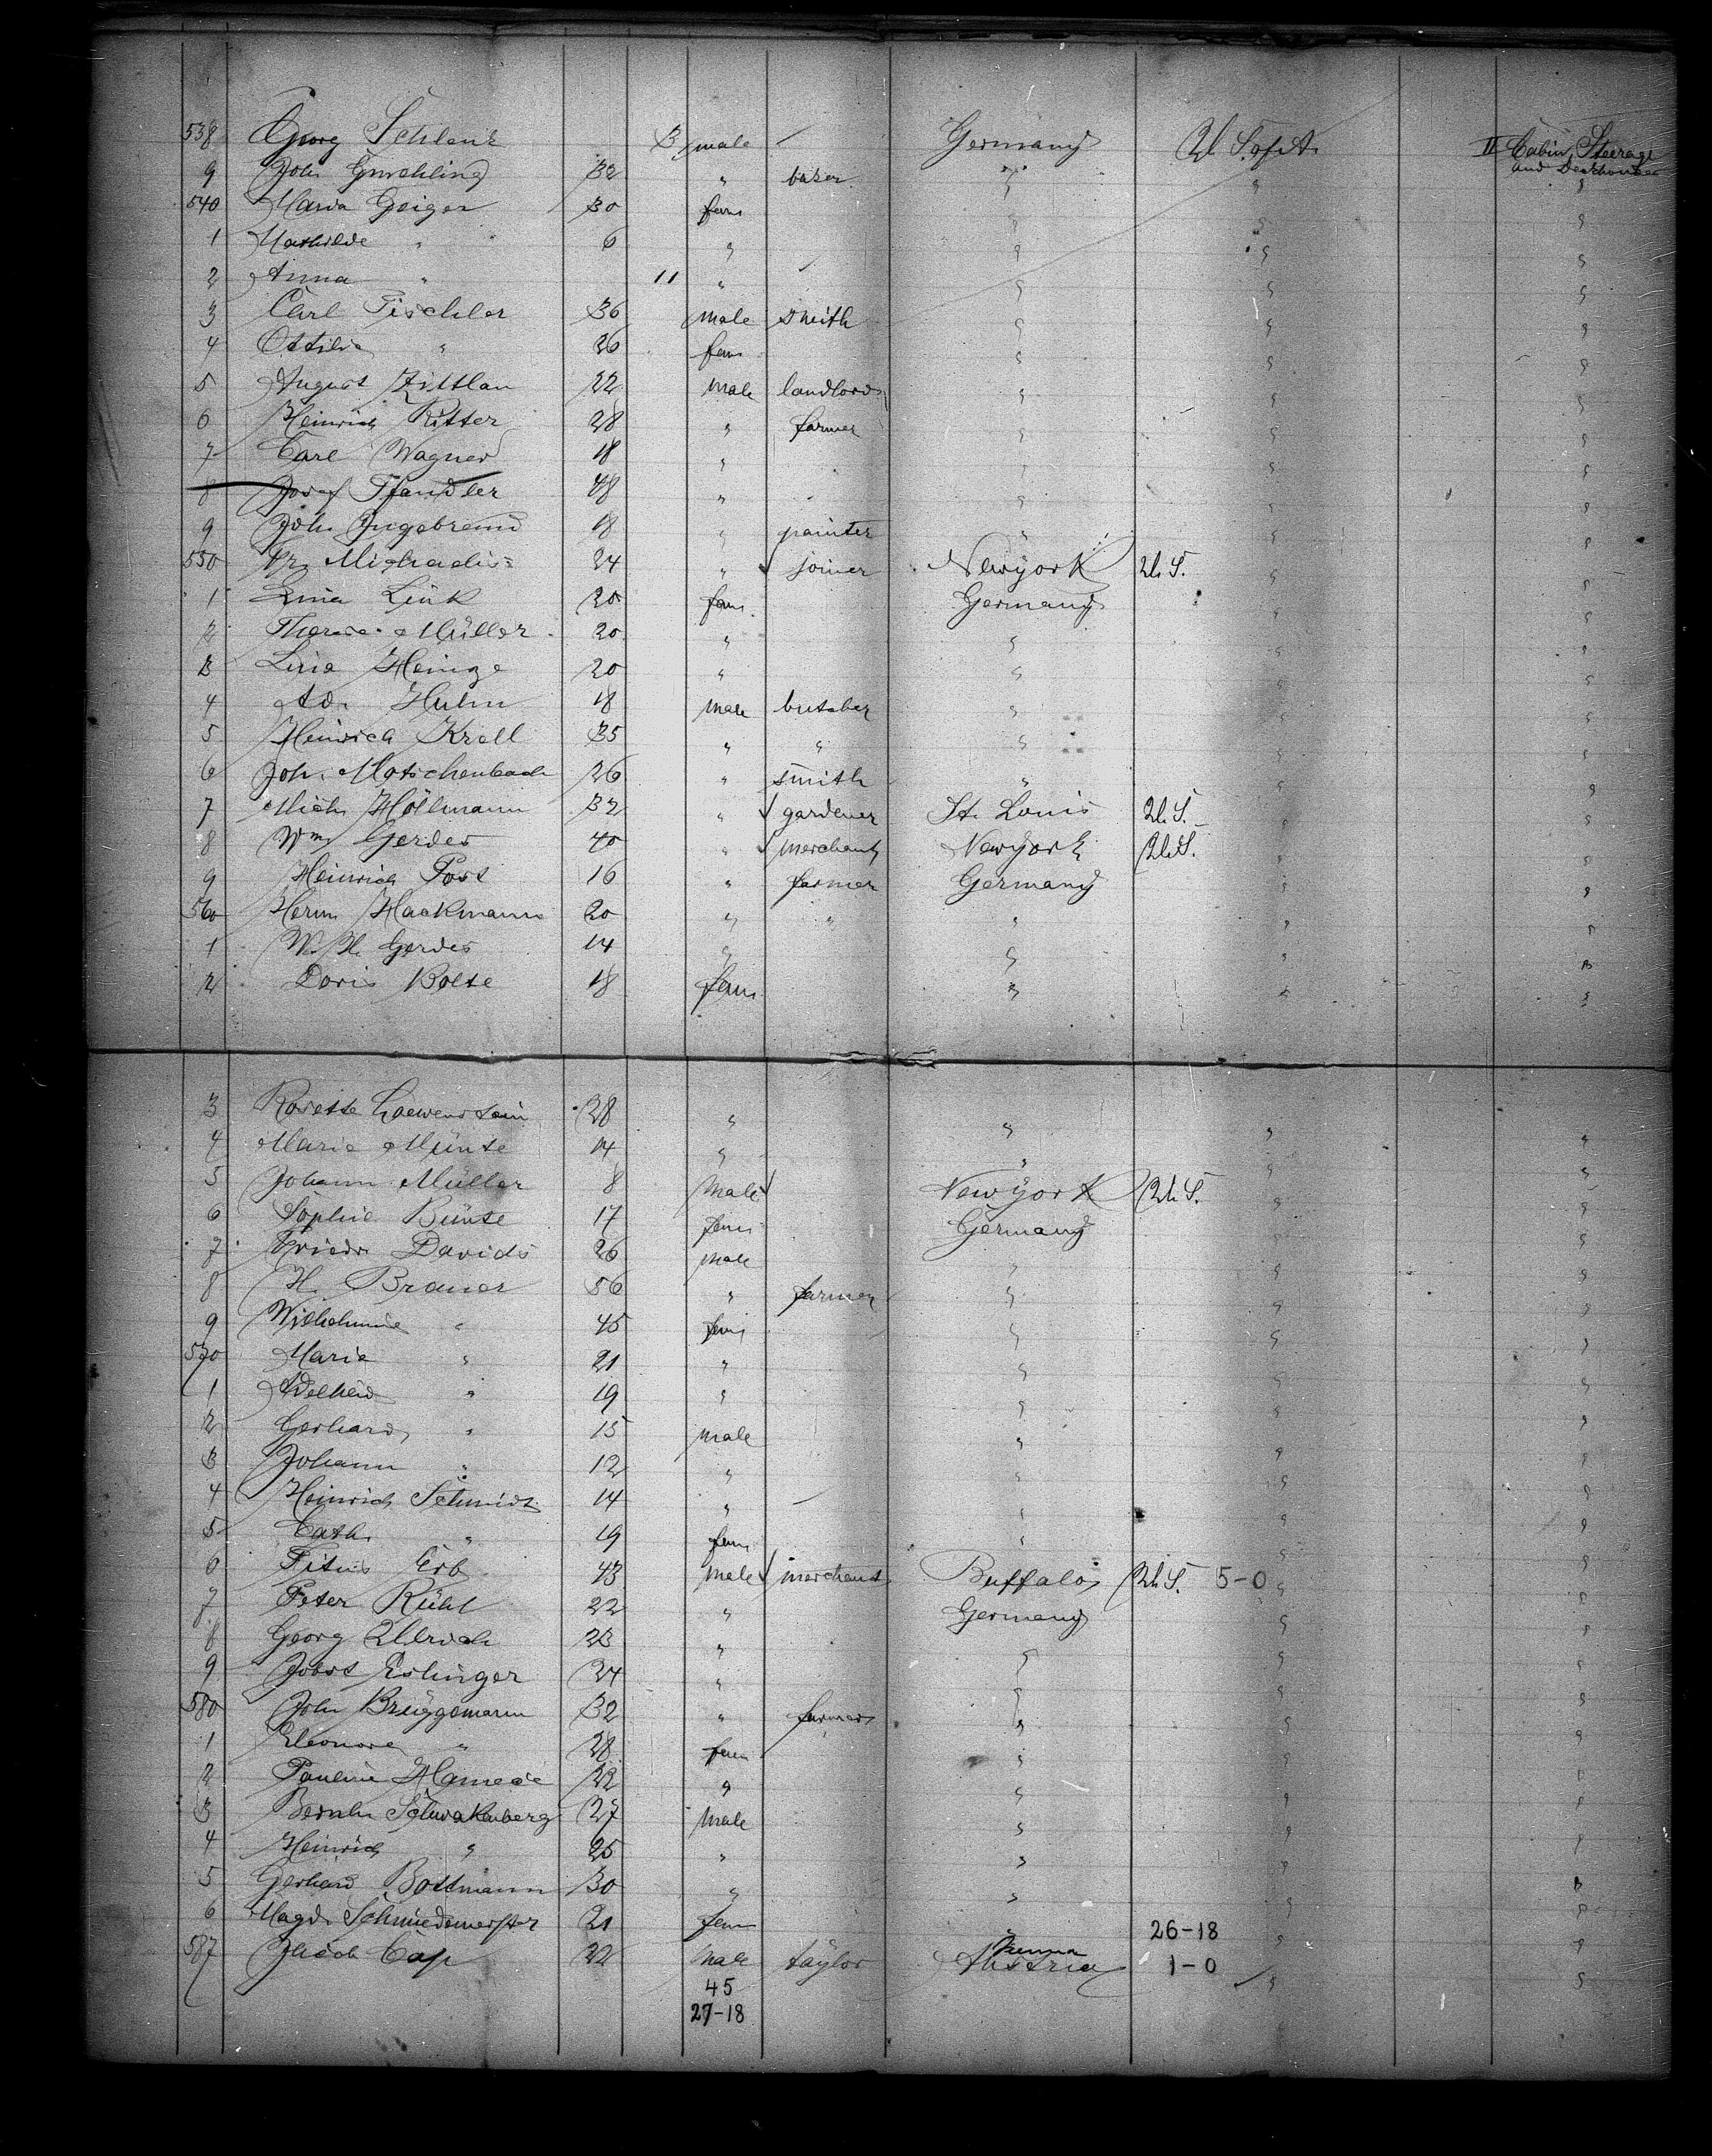 538 Georg Schlenk 3 male Germany U. S. of A. II Cabin, Steerage
and Deckhouse
9 Joh. 32 " baker " " "
540 Maria Geiger 30 fem " " "
1 Mathilde " 6 " " " "
2 Anna " 11 " " " "
3 Carl Tischler 36 male smith " " "
4 Ottilie " 26 fem " " "
5 August Zittlau 22 male landlord " " "
6 Heinrich Ritter 28 " farmer " " "
7 Carl Wagner 18 " " " "
8 Josef Pfandler 48 " " " "
9 Joh. Ingebrand 18 " painter " " "
550 Fr. Michaelis 24 " joiner Newyork U. S. "
1 Lina Link 20 fem Germany " "
2 Therese Müller 20 " " " "
3 Lina Heinze 20 " " " "
4 Ad. Huhn 18 male butcher " " "
5 Heinrich Kroll 35 " " " " "
6 Joh. Motschenbach 26 " smith " " "
7 Mich. Höllmann 32 " gardener St. Louis U. S. "
8 Wm Gerdes 40 " merchant Newyork U. S. "
9 Heinrich Post 16 " farmer Germany "
560 Herm Haakmann 20 " " " " "
1 W. H. Gerdes 14 " " " "
2 Doris Bolte 18 fem " " "
3 Rosette Loewenstein 28 " " " "
4 Marie Münte 14 " " " "
5 Johann Müller 8 male Newyork U. S. "
6 Sophie Bünte 17 fem Germany " "
7 Friedr. Davids 26 male " " "
8 H. Brauer 56 " farmer " " "
9 Wilhelmine " 45 fem " " "
570 Marie " 21 " " " "
1 Adelheid " 19 " " " "
2 Gerhard " 15 male " " "
3 Johann " 12 " " " "
4 Heinrich Schmidt 14 " " " "
5 Cath. " 19 fem " " "
6 Titus Erb 43 male merchant Buffalo U. S. 5-0 "
7 Peter Rühl 22 " Germany " "
8 Georg Ullrich 23 " " " "
9 Jobst Eslinger 24 " " " "
580 John Brüggemann 32 " farmer " " "
1 Eleonore " 28 fem " " "
2 Pauline 22 " " " "
3 Bernh. Schwakenberg 27 male " " "
4 Heinrich " 25 " " " "
5 Gerhard Bottmann 30 " " " "
6 Magd. Schmiedemeister 21 fem 26-18 " "
587 Jacob Cap 22 male taylor Vienna Austria 1-0 " "
45
27-18